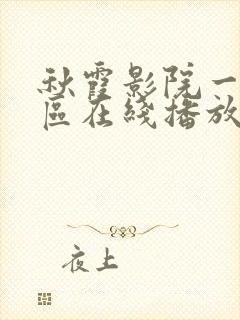 秋霞影院一
區在綫播放
夜上